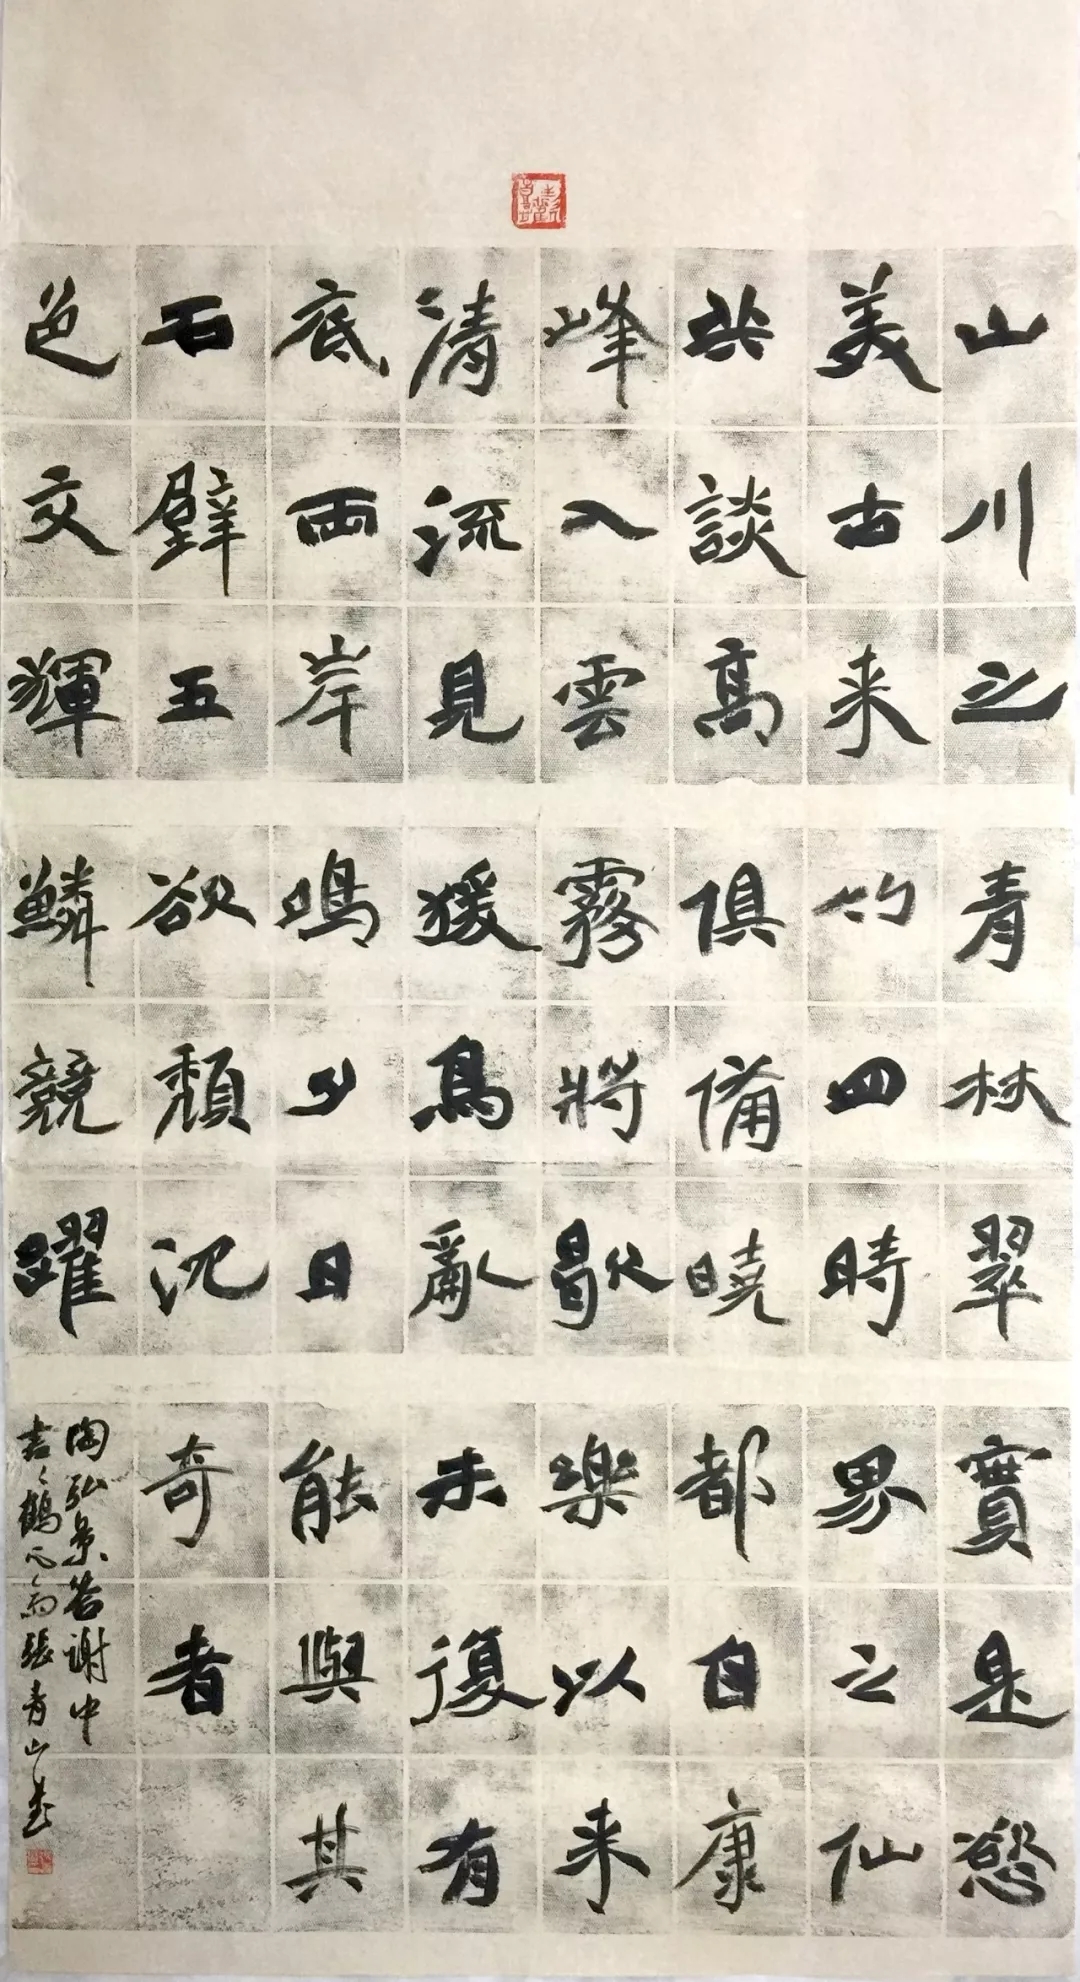 山川之
美古来
共談高
峰入雲
清流見
底兩岸
石壁五
色交輝
青林翠
竹四時
俱備曉
霧將歇
猨鳥亂
鳴夕日
欲頹沉
鱗競躍
實是慾
界之仙
都自康
樂以来
未復有
能與其
奇者
陶弘景答謝中
書〻鶴翁張青山書